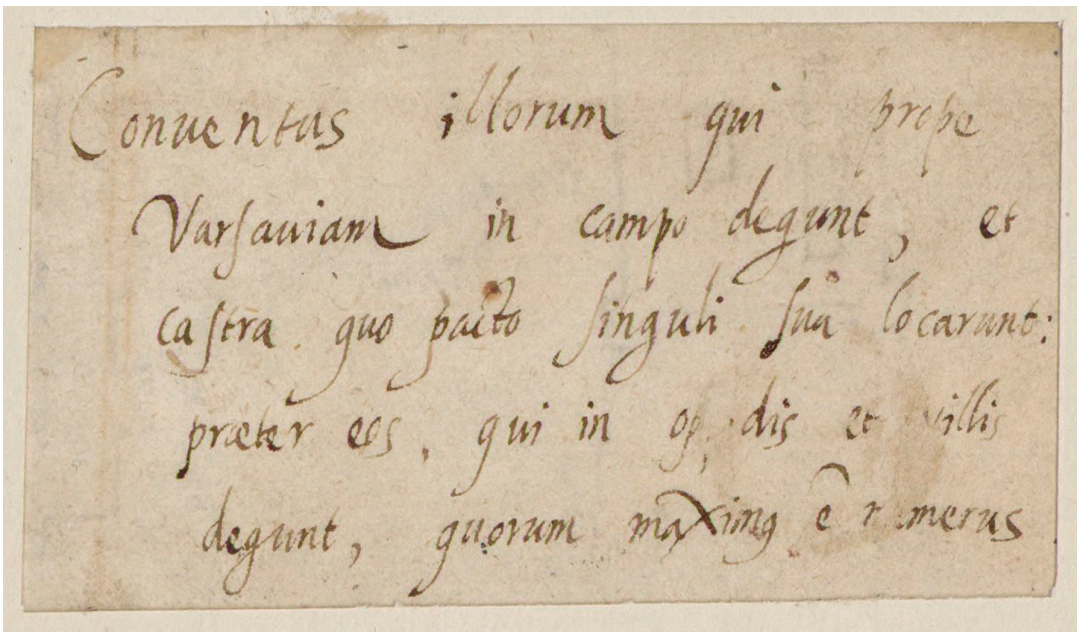 Conuentus illorum qui prope
Varsauiam in campo degunt, et
castra quo pacto singuli sua locarunt:
præter eos, qui in et villis
degunt, quorum maximꝰ ē numerus